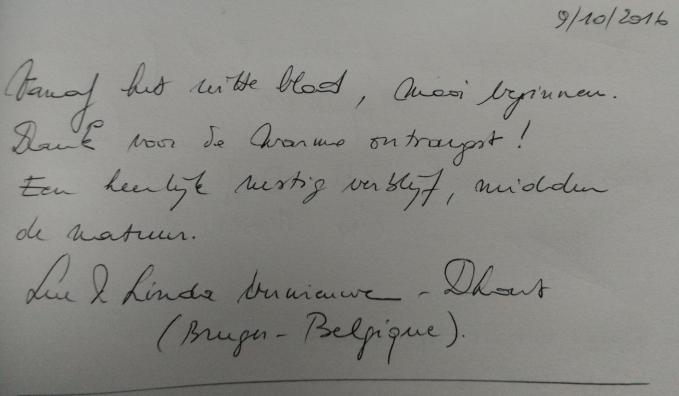 9/10/2016
Vanaf het witte blad, mooi beginnen.
Dank voor de warme ontvangst!
Een heerlijk rustig verblijf, midden
de natuur.
Luc & Linda - Dhont
(Bruges - Belgique).